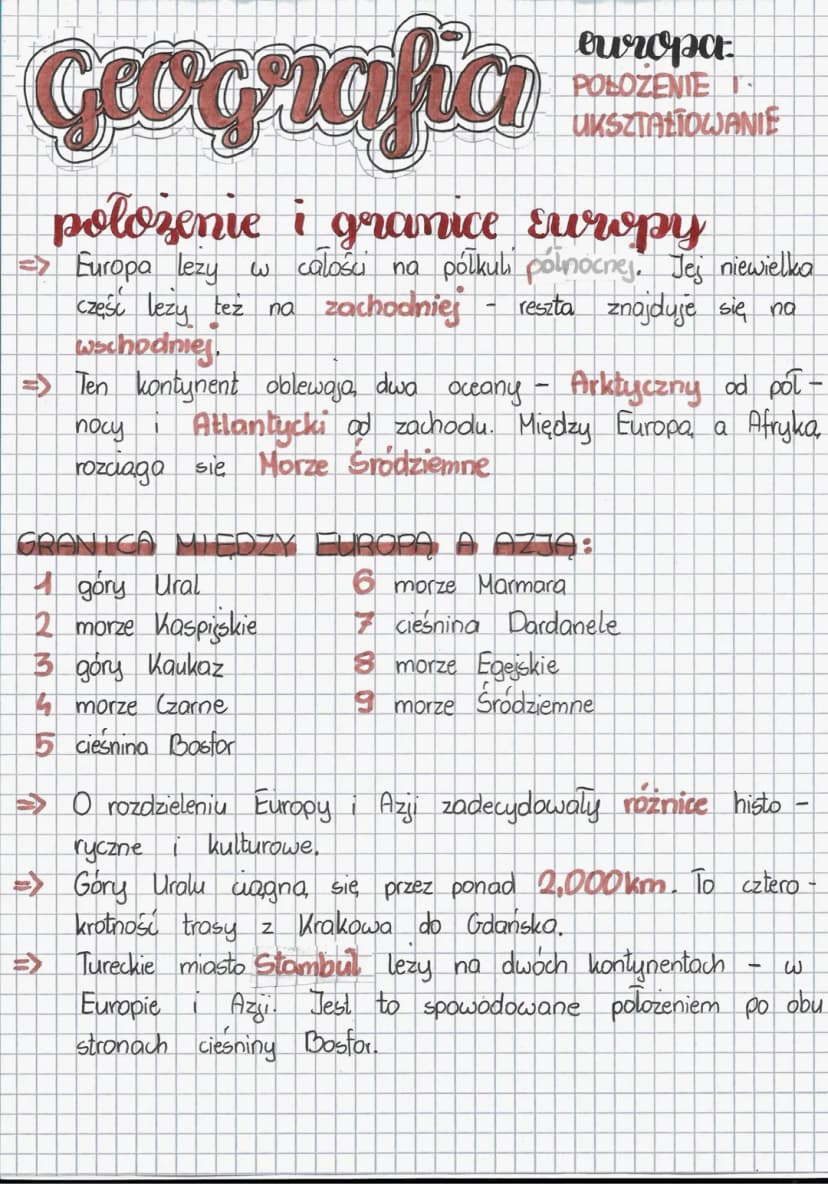 Geografia
europa:
POŁOŻENIE I
UKSZTAŁTOWANIE
położenie i granice Europy
=> Europa leży w całości na półkuli północnej. Jej niewielka
część leży też na zachodniej - reszta znajduje się na
wschodniej.
=> Ten kontynent oblewają dwa oceany - Arktyczny od pół-
nocy i Atlantycki od zachodu. Między Europą a Afryką
rozciąga się Morze Śródziemne
GRANICA MIĘDZY EUROPĄ A AZJĄ:
1 góry Ural
2 morze Kaspijskie
3 góry Kaukaz
4 morze Czarne
5 cieśnina Bosfor
6 morze Marmara
7 cieśnina Dardanele
8 morze Egejskie
9 morze Śródziemne
=> O rozdzieleniu Europy i Azji zadecydowały różnice histo-
ryczne i kulturowe.
=> Góry Uralu ciągną się przez ponad 2,000km. To cztero-
krotność trasy z Krakowa do Gdańska.
=> Tureckie miasto Stambuł leży na dwóch kontynentach - w
Europie i Azji. Jest to spowodowane położeniem po obu
stronach cieśniny Bosfor.